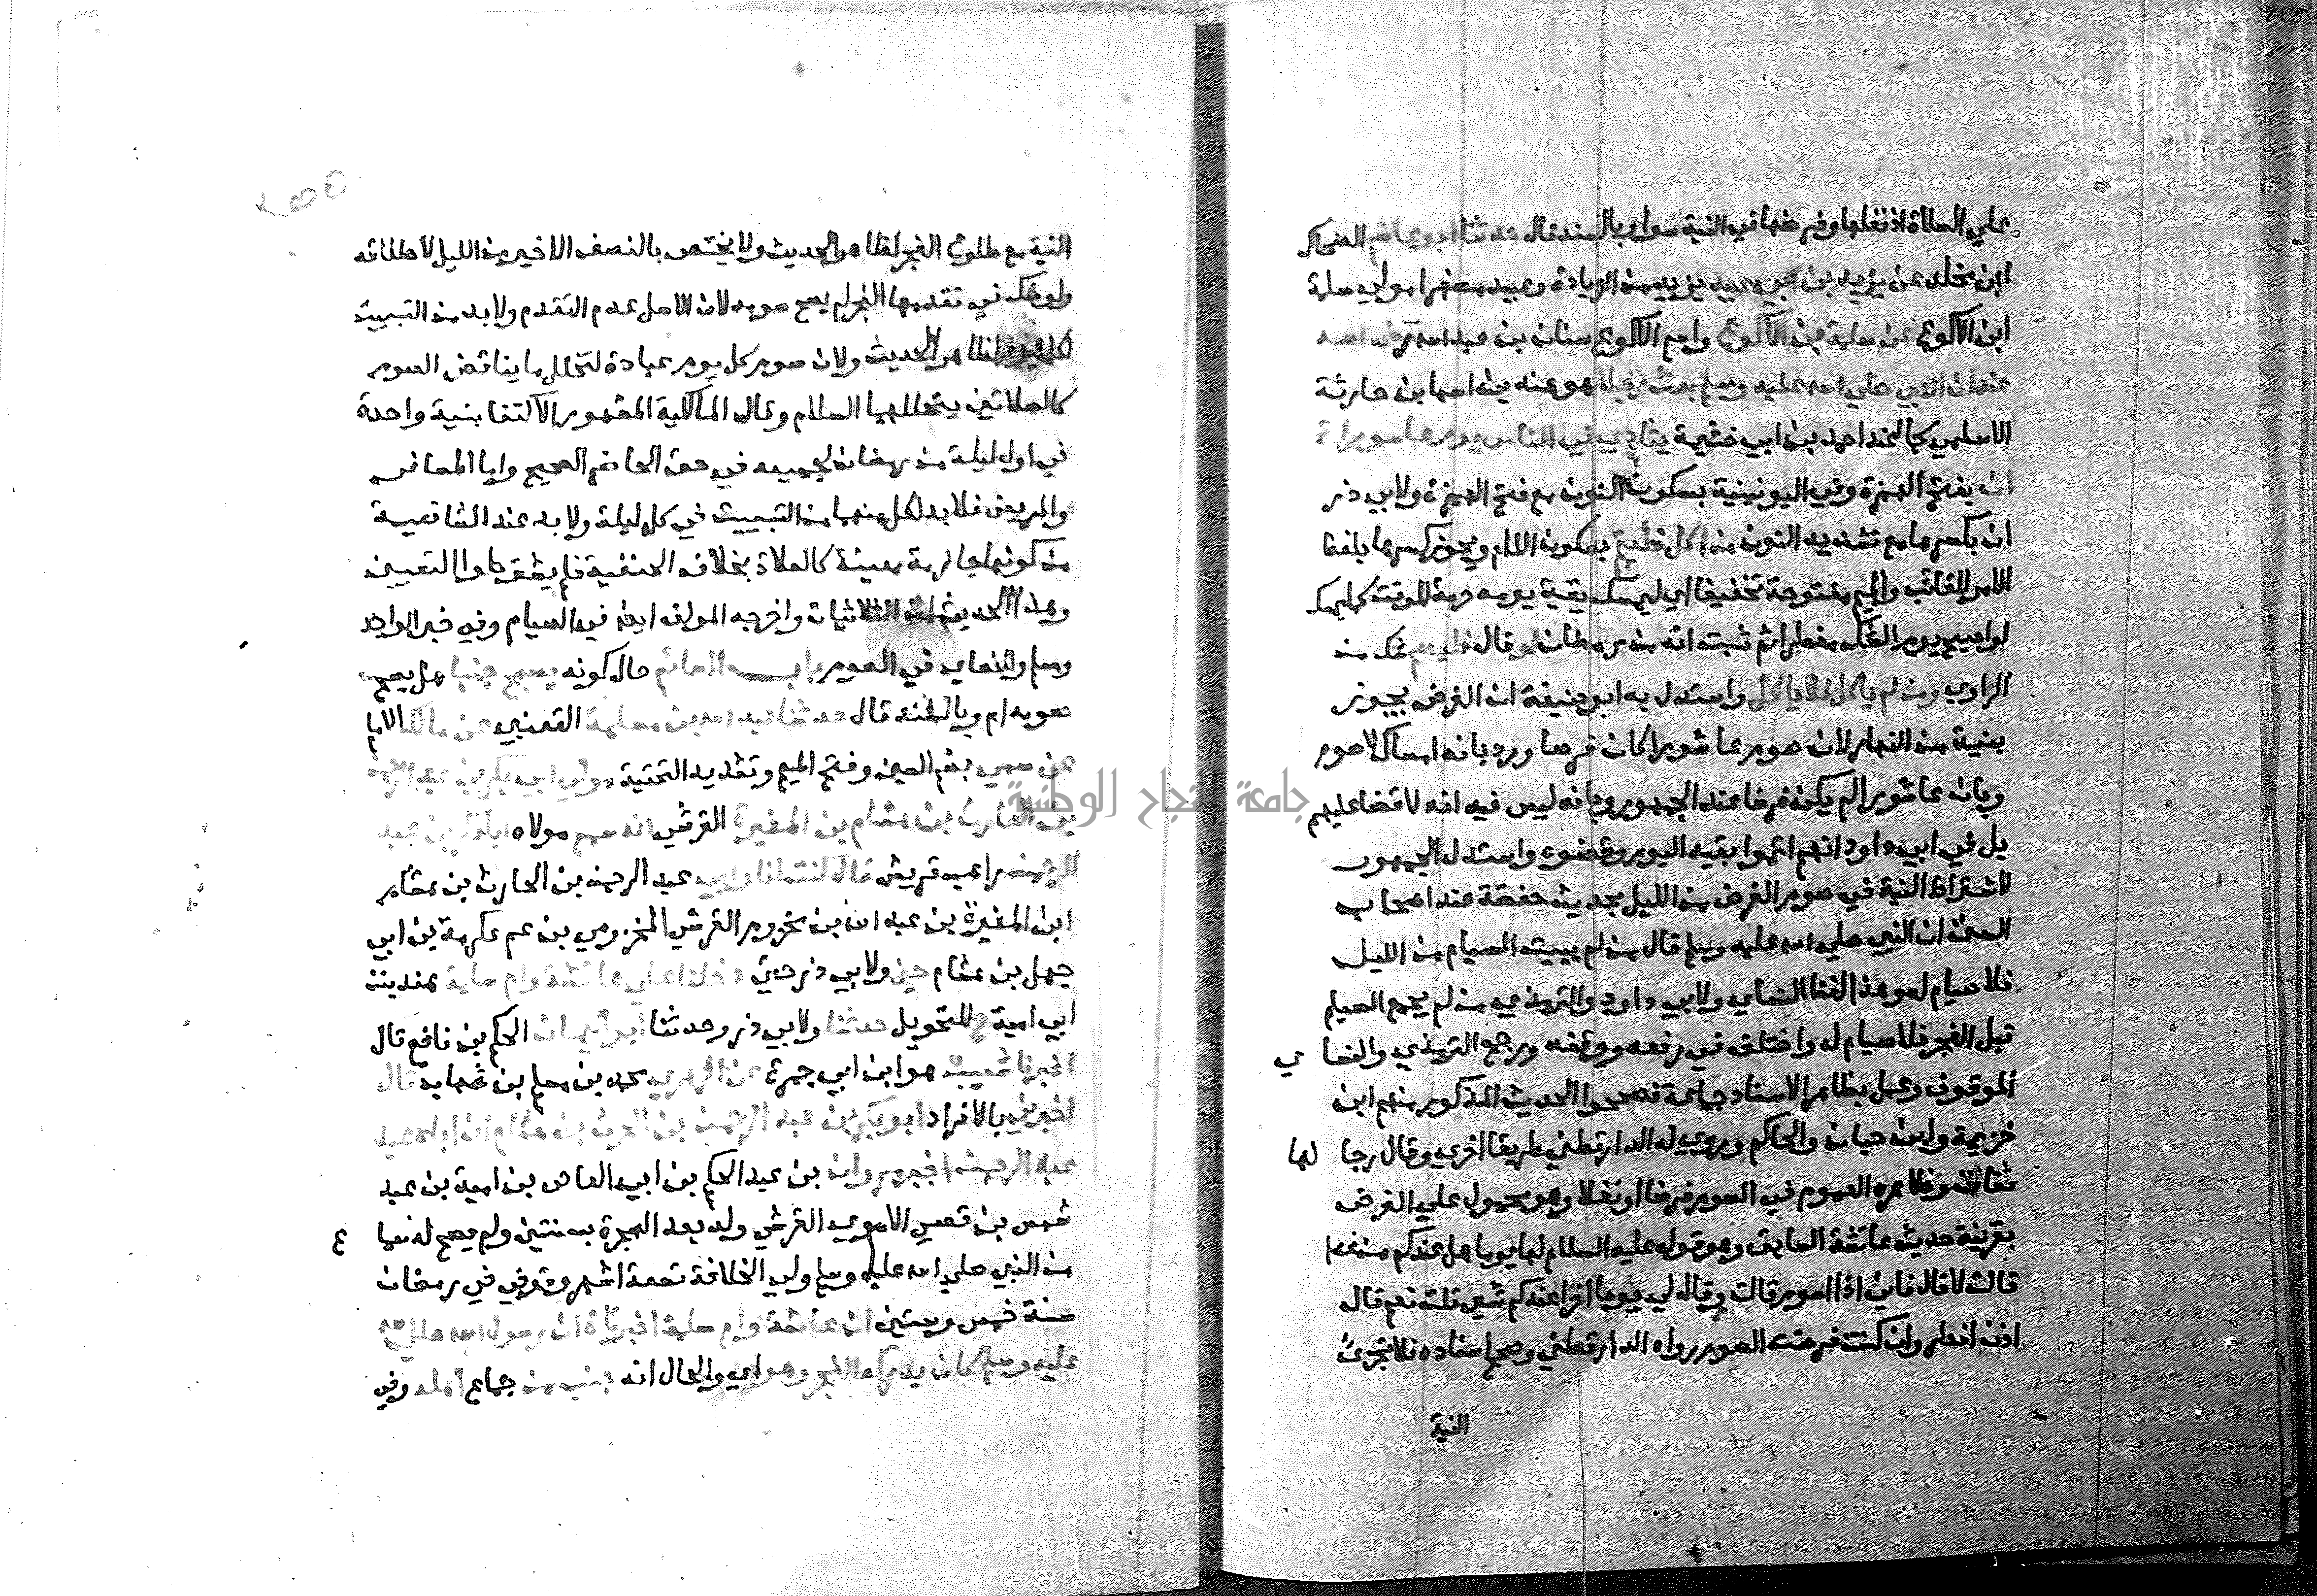 علي الصلاة اذ نفلها وفرضها في النية سواء وبالسند قال حدثنا ابو عاصم الضحاك
ابن مخلد عن يزيد بن ابي عبيد يزيد من الزيادة وعبيد مصغرا مولي سلمة
ابن الاكوع عن سلمة بن الاكوع واسم الاكوع سنان بن عبد الله رضي الله
عنه ان النبي صلي الله عليه وسلم بعث رجلا هو هند بن اسما بن حارثة
الاسلمي كما عند احمد بن ابي خيثمة ينادي في الناس يوم عاشورا
ان بفتح الهمزة وفي اليونينية بسكون النون مع فتح الهمزة ولابي ذر
ان بكسرها مع تشديد النون من اكل فليتم بسكون اللام ويجوز كسرها بلفظ
الامر للغائب والميم مفتوحة تخفيفا اي ليمسك بقية يومه حرمة للوقت كما يمسك
لو اصبح يوم الشك مفطرا ثم ثبت انه من رمضان او قال فليصم شك من
الراوي ومن لم ياكل فلا ياكل واستدل به ابو حنيفة ان الفرض يجوز
بنية من النهار لان صوم عاشورا كان فرضا ورد بانه امساك لا صوم
وبان عاشورا لم يكن فرضا عند الجمهور وبانه ليس فيه انه لا قضا عليهم
بل في ابي داود انهم اتموا بقية اليوم وقضوه واستدل الجمهور
لاشتراط النية في صوم الفرض من الليل بحديث حفصة عند اصحاب
السنن ان النبي صلي الله عليه وسلم قال من لم يبيت الصيام من الليل
فلا صيام له وهذا لفظ النساي ولابي داود والترمذي من لم يجمع الصيام
قبل الفجر فلا صيام له واختلف في رفعه ووقفه ورجح الترمذي والنسا ي
الموقوف وعمل بظاهر الاسناد جماعة فصححوا الحديث المذكور منهم ابن
خزيمة وابن حبان والحاكم وروي له الدارقطني طريقا اخري وقال رجا لها
ثقات وظاهره العموم في الصوم فرضا او نفلا وهو محمول علي الفرض
بقرينة حديث عائشة السابق وهو قوله عليه السلام لها يوما هل عندكم من غدا
قالت لا قال فاني اذا اصوم قالت وقال لي يوما اخر اعندكم شي قلت نعم قال
اذن افطر وان كنت فرضت الصوم رواه الدارقطني وصحح اسناده فلا تجزئ
النية
النية مع طلوع الفجر لظاهر الحديث ولا يختص بالنصف الاخير من الليل لاطلاقه
ولو شك في تقدمها الفجر لم يصح صومه لان الاصل عدم التقدم ولا بد من التبييت
لكل يوم لظاهر الحديث ولان صوم كل يوم عبادة لتخلل ما يناقض الصوم
كالصلاتين يتخللهما السلام وقال المالكية المشهور الاكتفا بنية واحدة
في اول ليلة من رمضان لجميعه في حق الحاضر الصحيح واما المسافر
والمريض فلا بد لكل منهما من التبييت في كل ليلة ولا بد عند الشافعية
من كونها جازمة معينة كالصلاة بخلاف الحنفية فلم يشترطوا التعيين
وهذا الحديث من الثلاثيات واخرجه المولف ايضا في الصيام وفي خبر الواحد
ومسلم والنساي في الصوم باب الصائم حال كونه يصبح جنبا هل يصح
صومه ام وبالسند قال حدثنا عبد الله بن مسلمة القعنبي عن مالك الامام
عن سمي بضم السين وفتح الميم وتشديد التحتية مولي ابي بكر بن عبد الرحمن
بن الحارث بن هشام بن المغيرة القرشي انه سمع مولاه ابا بكر بن عبد
الرحمن راهب قريش قال كنت انا وابي عبد الرحمن بن الحارث بن هشام
ابن المغيرة بن عبد الله بن مخزوم القرشي المخزومي بن عم عكرمة بن ابي
جهل بن هشام حين ولابي ذر حتي دخلنا علي عائشة وام سلمة هند بنت
ابي امية ح للتحويل حدثنا ولابي ذر وحدثنا ابو اليمان الحكم بن نافع قال
اخبرنا شعيب هو ابن ابي حمزة عن الزهري محمد بن مسلم بن شهاب قال
اخبرني بالافراد ابو بكر بن عبد الرحمن بن الحرث بن هشام ان اباه عبد
عبد الرحمن اخبر مروان بن عبد الحكم بن ابي العاص بن امية بن عبد
شمس بن قصي الاموي القرشي ولد بعد الهجرة بسنتين ولم يصح له سما ع
من النبي صلي الله عليه وسلم ولي الخلافة تسعة اشهر وتوفي في رمضان
سنة خمس وستين ان عائشة وام سلمة اخبرتاه ان رسول الله صلي الله
عليه وسلم كان يدركه الفجر وهو اي والحال انه جنب من جماع اهله وفي